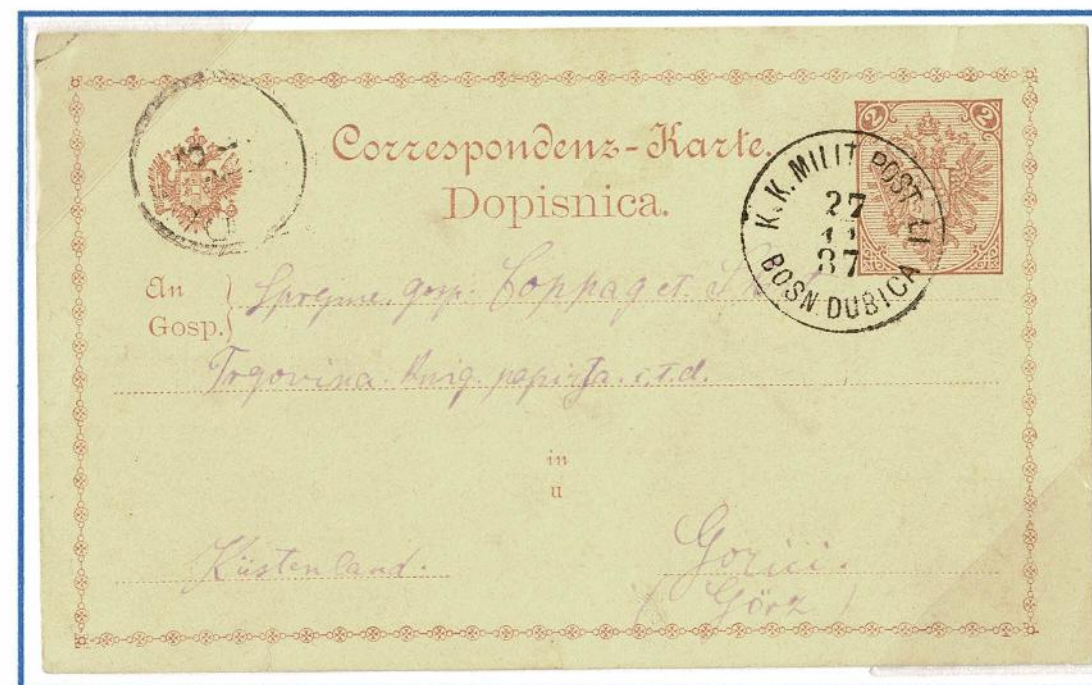 Correspondenz-Karte.
Dopisnica.
2 2
K. K. MILIT. POST
27
11
87
BOSN. DUBICA
An
Gosp.
gosp. Coppag et
Trgovina. Knig. papirja. i.t.d.
in
u
Küstenland.
Gorici.
(Görz)